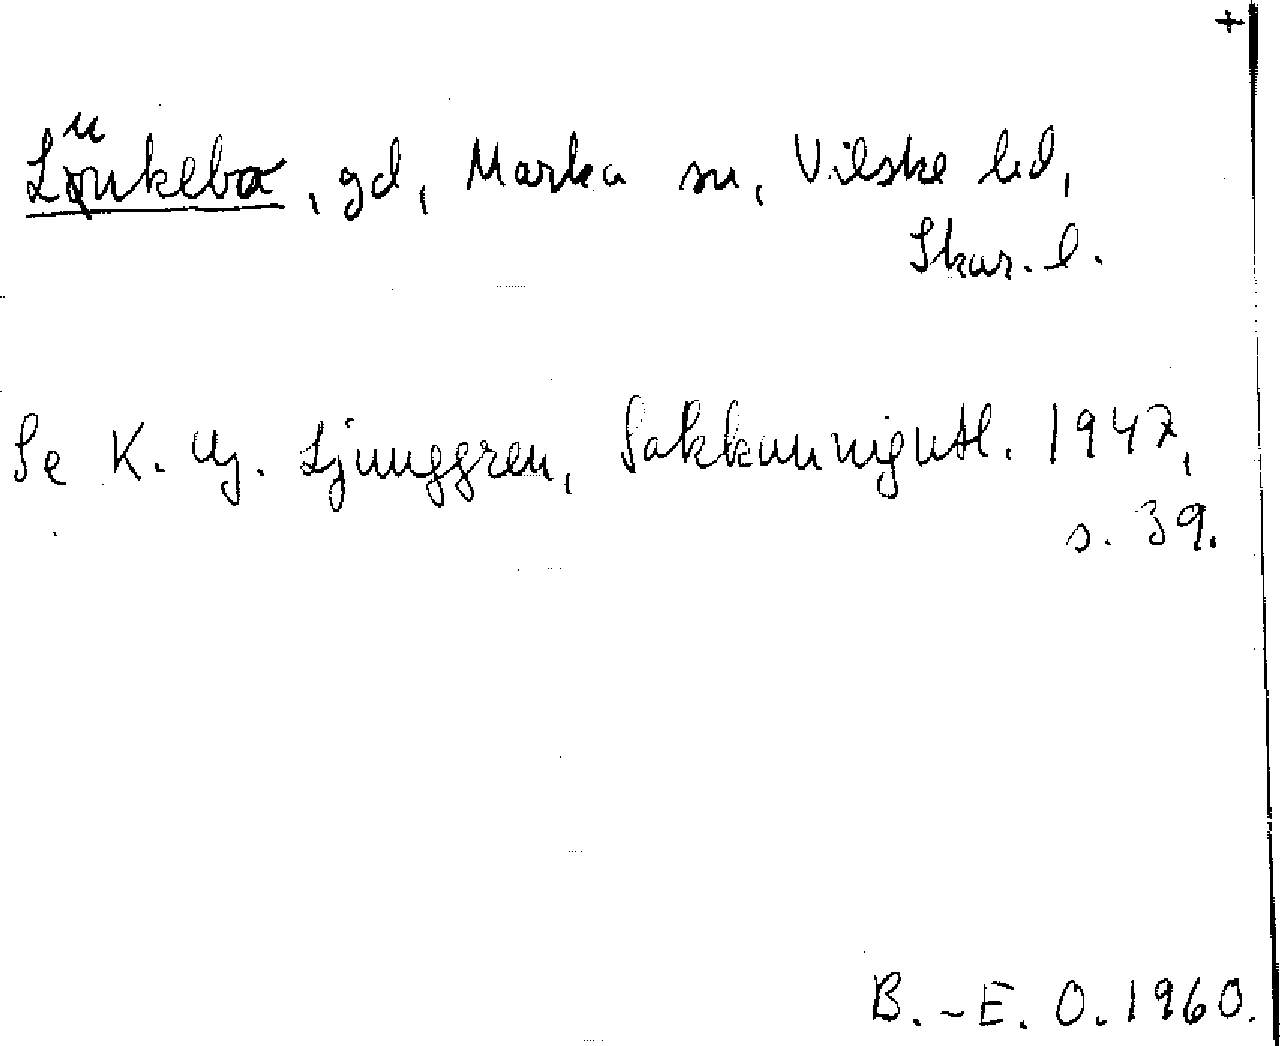 +
Lunkebo, gd, Marka sn, Vilske hd,
Skar. l.
Se K. Hj. Ljunggren, Sakkunnigutl. 1947,
s. 39.
B.-E. O. 1960.